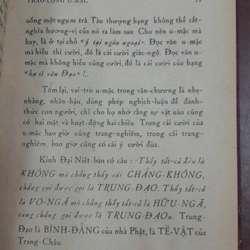 THAO-LUONG U-MẶC
uống một ngụm trà Tàu thượng hạng không thể cắt-
nghĩa hương-vị của nó ra làm sao. Cho nên u-mặc mà
hay, là ở tại chỗ « ý tại ngôn ngoại ». Đọc văn u-
mặc mà không cười, đó là cái cười giác-ngộ. Đọc văn u-
mặc mà không hiểu cũng cười, đó là cái cười của hạng
« hạ sĩ văn Đạo » !...
Tóm lại, vai-trò u-mặc trong văn-chương là nhẹ-
nhàng, nhân-hậu, dùng phép nghịch-luận để đánh
thức người đời, chỉ cho họ nhớ rằng sự vật nào cũng
có hai mặt, và hoạt-động hai chiều. Trong cái cười của
u-mặc bao giờ cũng trang-nghiêm, trong cái trang-
nghiêm bao giờ cũng có cái cười.
Kinh Đại Niết-bàn có câu : « Thấy tất-cả đều là
KHÔNG mà chẳng thấy cái CHẲNG-KHÔNG,
chẳng gọi được gọi là TRUNG-ĐẠO. Thấy tất-cả
là VÔ-NGÃ mà chẳng thấy cái là HỮU-NGÃ,
cũng chẳng gọi được là TRUNG-ĐẠO ». Trung-
Đạo là BÌNH-ĐẲNG của nhà Phật, là TỀ-VẬT của
Trang-Châu